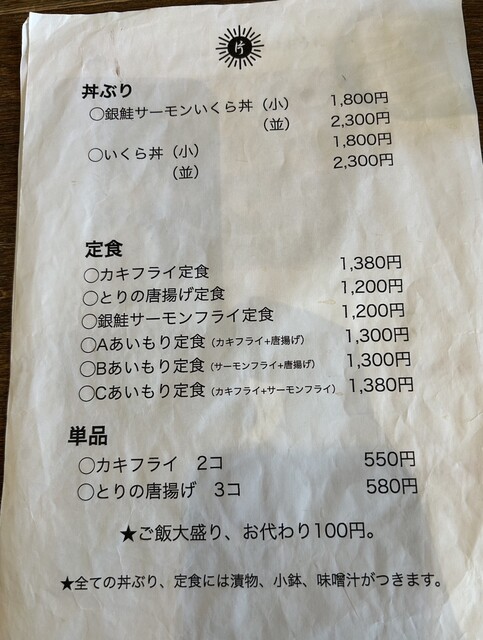 丼ぶり
◯銀鮭サーモンいくら丼（小） 1,800円
（並） 2,300円
◯いくら丼（小） 1,800円
（並） 2,300円
定食
◯カキフライ定食 1,380円
◯とりの唐揚げ定食 1,200円
◯銀鮭サーモンフライ定食 1,200円
◯Aあいもり定食（カキフライ+唐揚げ） 1,300円
◯Bあいもり定食（サーモンフライ+唐揚げ） 1,300円
◯Cあいもり定食（カキフライ+サーモンフライ） 1,380円
単品
◯カキフライ 2コ 550円
◯とりの唐揚げ 3コ 580円
★ご飯大盛り、お代わり100円。
★全ての丼ぶり、定食には漬物、小鉢、味噌汁がつきます。